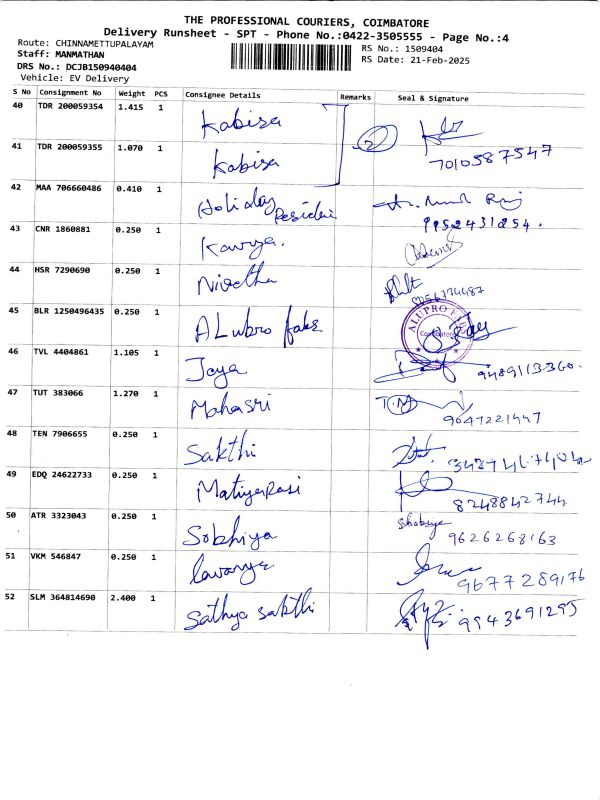 THE PROFESSIONAL COURIERS, COIMBATORE
Delivery Runsheet - SPT - Phone No.:0422-3505555 - Page No.:4
Route: CHINNAMETTUPALAYAM
RS No.: 1509404
Staff: MANMATHAN
RS Date: 21-Feb-2025
DRS No.: DCJB150940404
Vehicle: EV Delivery
S No Consignment No Weight PCS Consignee Details Remarks Seal & Signature
40 TDR 200059354 1.415 1 Kabisa 2
41 TDR 200059355 1.070 1 Kabisa 7010587547
42 MAA 706660486 0.410 1 Holiday 9952431254.
43 CNR 1860881 0.250 1 Kavya.
44 HSR 7290690 0.250 1 Nivetha
45 BLR 1250496435 0.250 1 ALubro
46 TVL 4404861 1.105 1 Jaya 9489113360.
47 TUT 383066 1.270 1 Mahasri T.M 9047221447
48 TEN 7906655 0.250 1 Sakthi
49 EDQ 24622733 0.250 1 Matiyarasi 8248842744
50 ATR 3323043 0.250 1 Sobhiya Shobiya 9626268163
51 VKM 546847 0.250 1 lavanya 9677289176
52 SLM 364814690 2.400 1 Sathya sakthi 9943691295